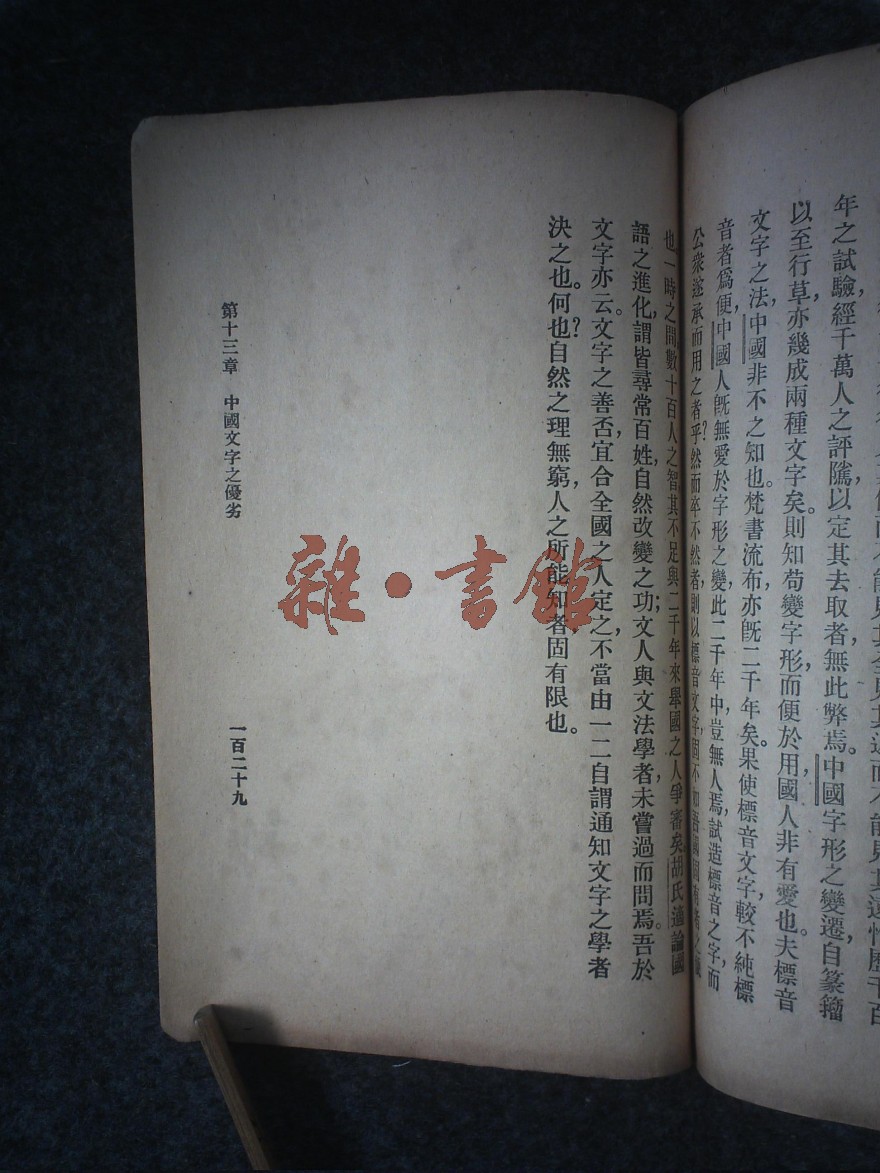 能見其全見其近而不能見其遠惟歷千百
年之試驗,經千萬人之評隲,以定其去取者,無此弊焉。中國字形之變遷,自篆籀
以至行草,亦幾成兩種文字矣。則知苟變字形而便於用,國人非有愛也。夫標音
文字之法,中國非不之知也。梵書流布,亦旣二千年矣。果使標音文字,較不純標
音者爲便,中國人旣無愛於字形之變,此二千年中,豈無人焉,試造標音之字,而
公衆遂承而用之者乎?然而卒不然者,則以標音文字,固不如吾國固有者之
也一時之間,數十百人之智,其不足與二千年來舉國之人爭審矣。胡氏適論國
語之進化,謂皆尋常百姓,自然改變之功;文人與文法學者,未嘗過而問焉。吾於
文字亦云。文字之善否,宜合全國之人定之,不當由一二自謂通知文字之學者
決之也。何也?自然之理無窮,人之所能知者固有限也。
第十三章 中國文字之優劣
一百二十九
雜·書館